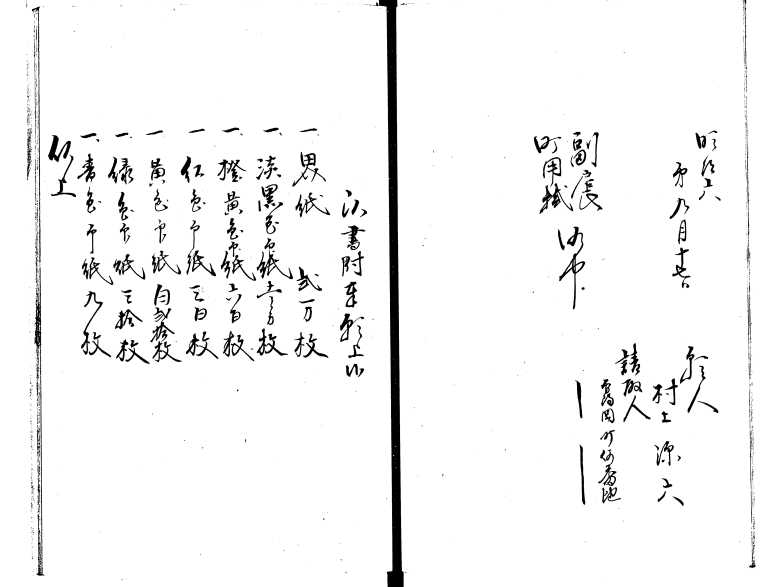 明治六
第九月十七日
願人
村上源六
請取人
岡町何番地
副長
町用掛 御中
以書附奉願上候
一 界紙 弐万枚
一 淡黒色印紙 枚
一 橙黄色印紙 六百枚
一 紅色印紙 三百枚
一 黄色印紙 百弐拾枚
一 緑色印紙 三拾枚
一 青色印紙 九枚
以上